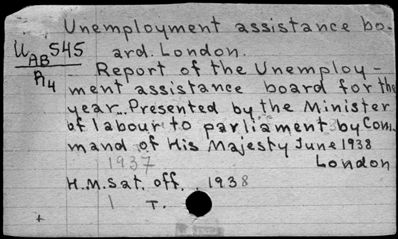 Unemployment assistance bo-
U AB 545
A4
ard. London.
Report of the Unemploy-
ment assistance board for the
year... Presented by the Minister
of labour to parliament by Com
mand of His Majesty June 1938
1937 London
H.M. Sat. off. 1938
1 T.